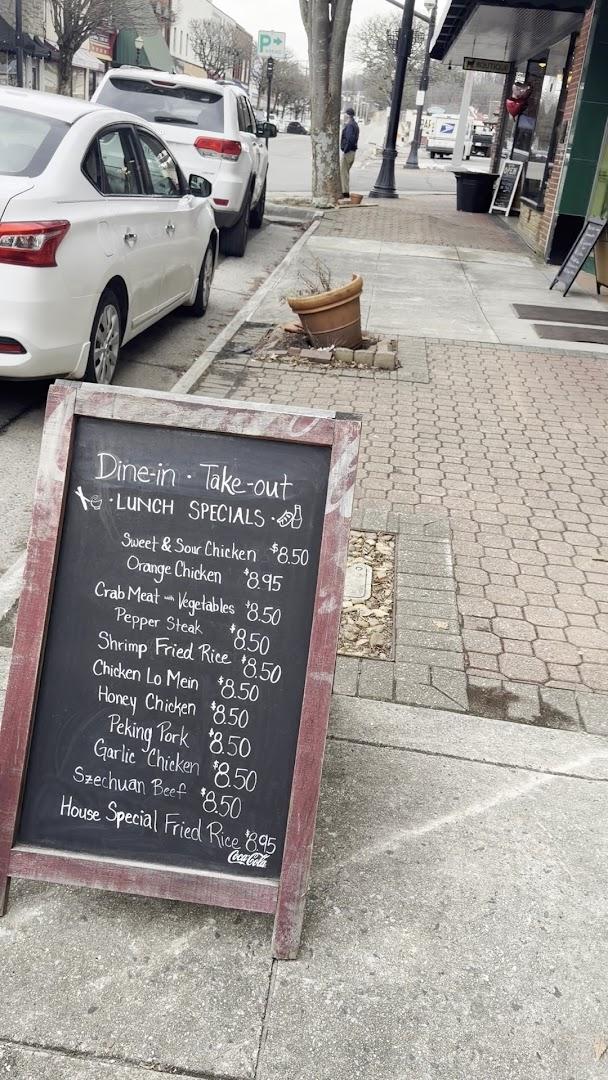 P
BOUTIQUE
OPEN
Dine-in · Take-out
· LUNCH SPECIALS ·
Sweet & Sour Chicken $8.50
Orange Chicken $8.95
Crab Meat with Vegetables $8.50
Pepper Steak $8.50
Shrimp Fried Rice $8.50
Chicken Lo Mein $8.50
Honey Chicken $8.50
Peking Pork $8.50
Garlic Chicken $8.50
Szechuan Beef $8.50
House Special Fried Rice $8.95
Coca-Cola